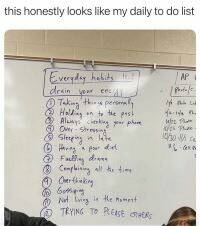 this honestly looks like my daily to do list
Everyday habits
drain your
① Taking things personally
② Holding on to the past
③ Always checking your phone
④ Over-stressing
⑤ Sleeping in late
⑥ Having a poor diet
⑦ Fuelling drama
⑧ Complaining all the time
⑨ Overthinking
⑩ Gossiping
⑪ Not living in the moment
⑫ TRYING TO PLEASE OTHERS
AP